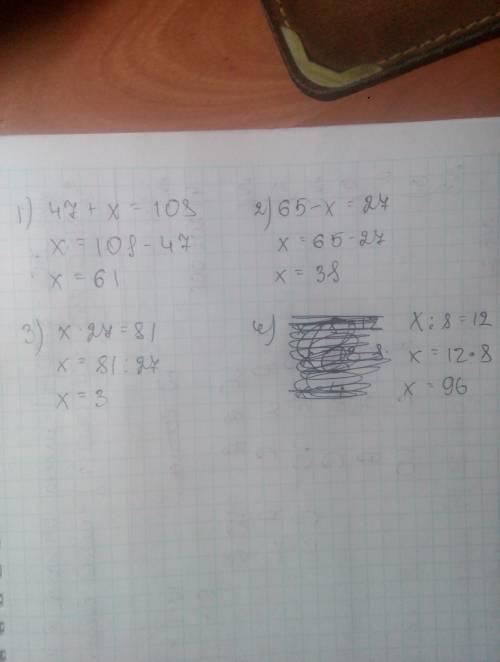 1) 47 + x = 108
x = 108 - 47
x = 61
2) 65 - x = 27
x = 65 - 27
x = 38
3) x · 27 = 81
x = 81 : 27
x = 3
4) x : 8 = 12
x = 12 · 8
x = 96